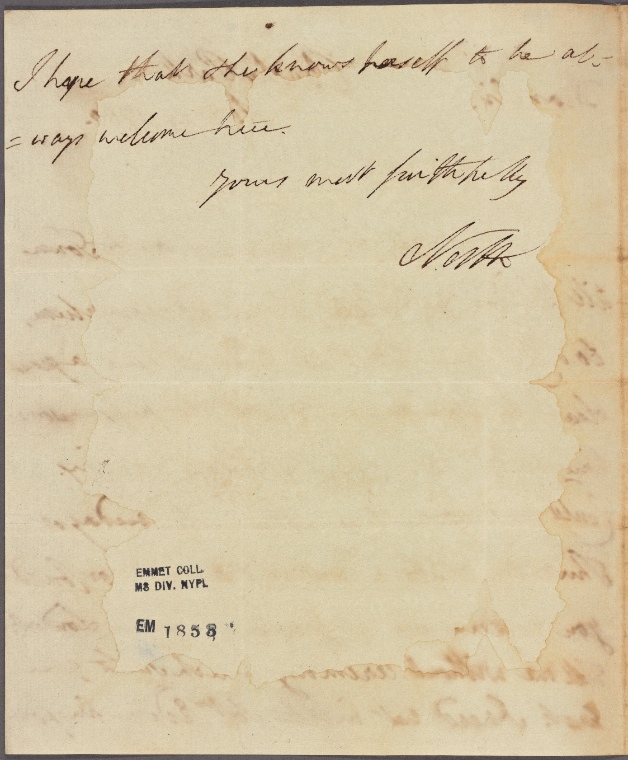 I hope that she knows herself to be al-
=ways welcome here.
yours most faithfully
North
EMMET COLL.
MS DIV. NYPL
EM 1858